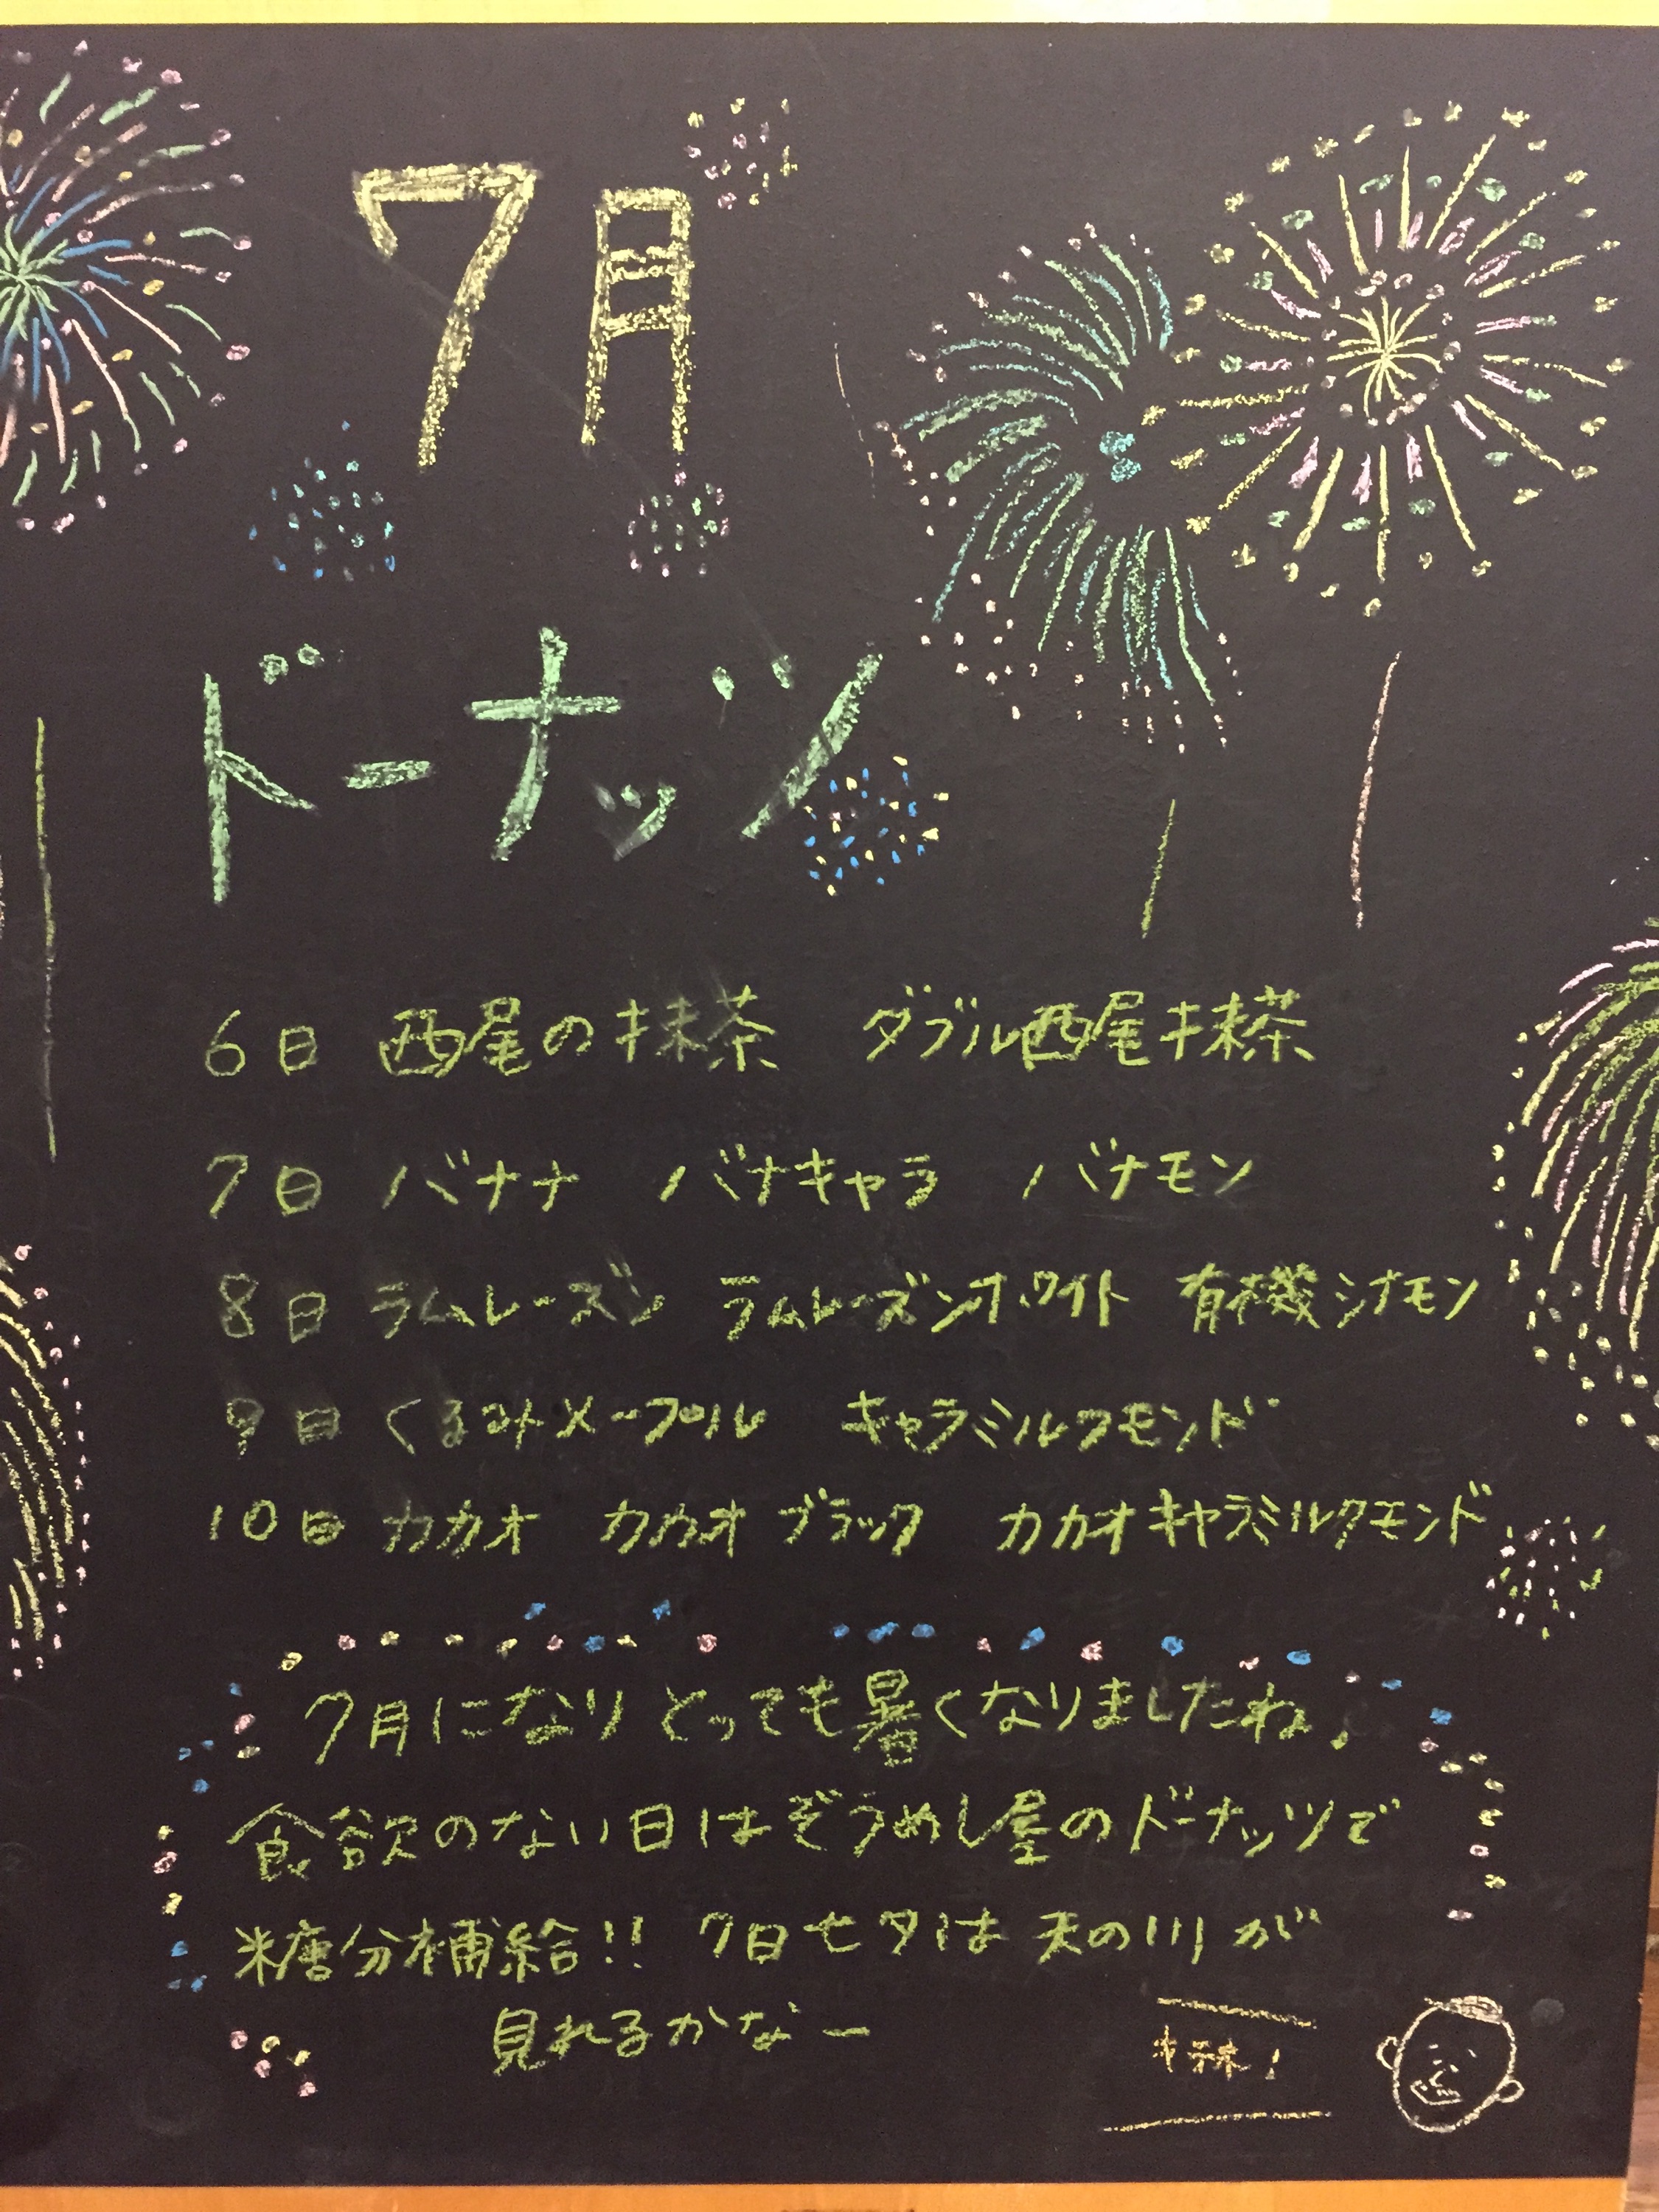 7月
ドーナッツ
6日 西尾の抹茶 ダブル西尾抹茶
7日 バナナ バナキャラ バナモン
8日 ラムレーズン ラムレーズンホワイト 有機シナモン
9日 くるみメープル キャラミルクモンド
10日 カカオ カカオブラック カカオキャラミルクモンド
7月になりとっても暑くなりましたね。
食欲のない日はぞうめし屋のドーナッツで
糖分補給!! 7日七夕は天の川が
見れるかなー